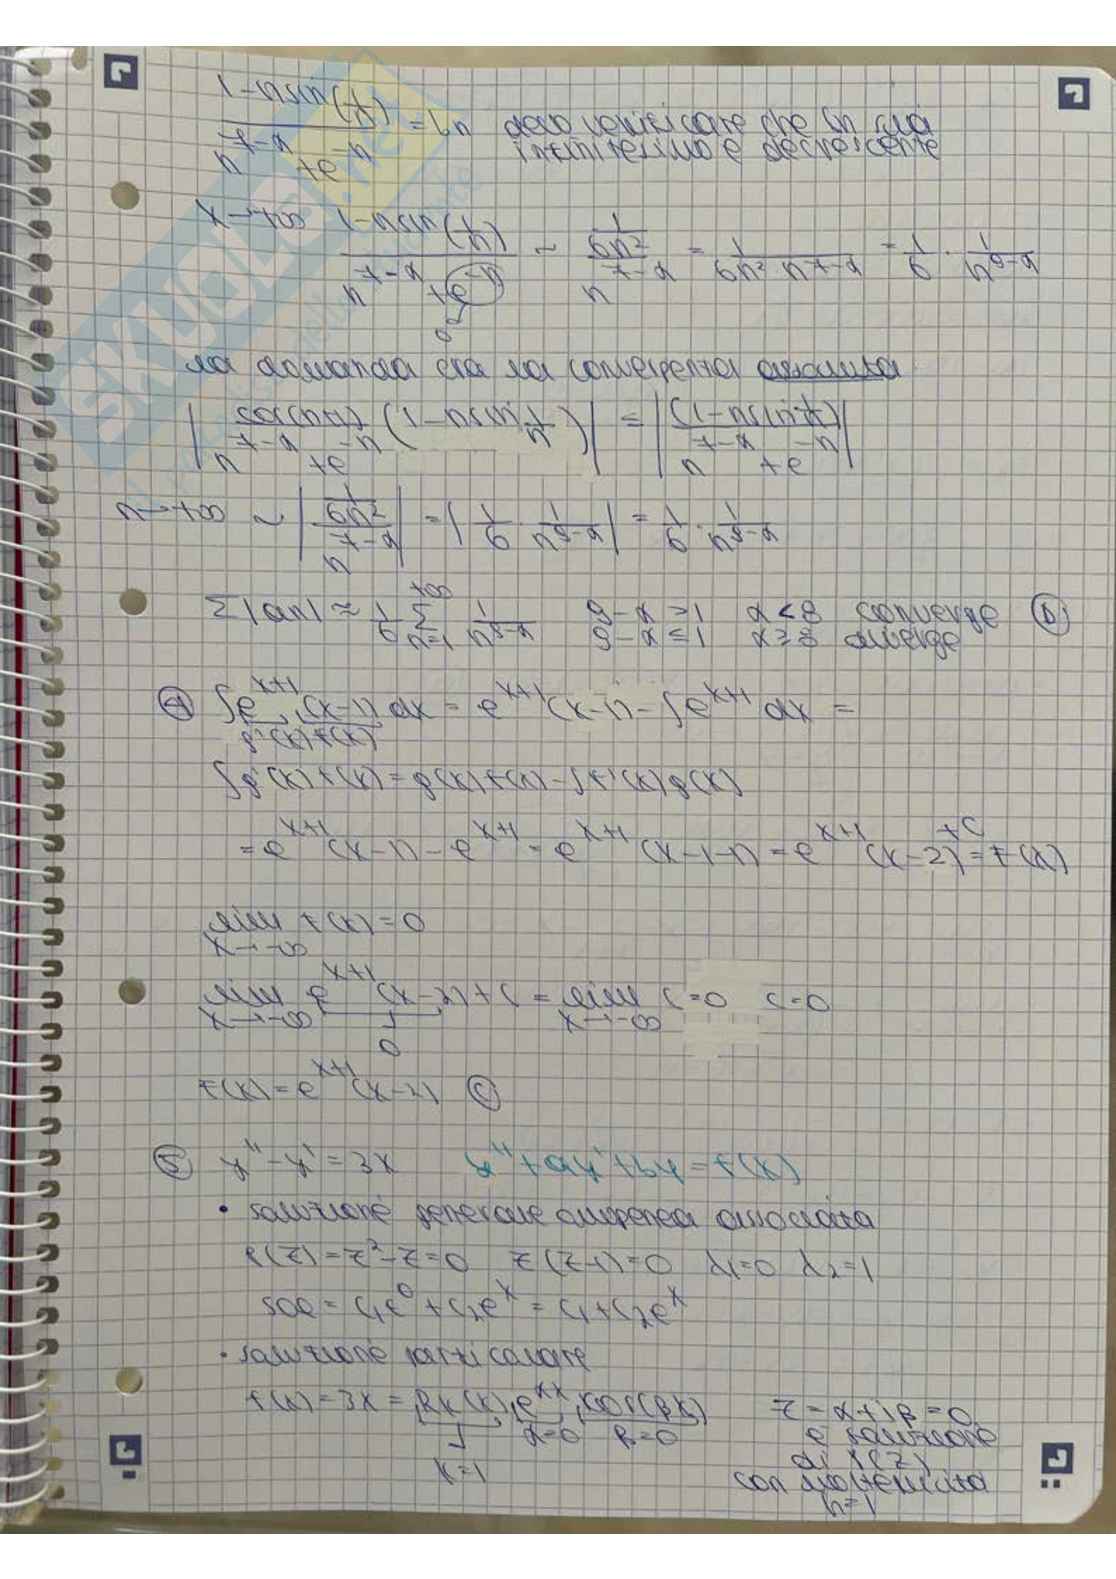 (1-nsin(1/n))/(n^(7-α)+e^(-n)) = bn devo verificare che bn sia
infinitesimo e decrescente
x→+∞ (1-nsin(1/n))/(n^(7-α)+e^(-n)) ~ (1/6n²)/n^(7-α) = 1/(6n² n^(7-α)) = 1/6 · 1/n^(9-α)
0
la domanda era la convergenza assoluta
|cos(nπ)/(n^(7-α)+e^(-n)) (1-nsin 1/n)| = |(1-nsin 1/n)/(n^(7-α)+e^(-n))|
n→+∞ ~ |(1/6n²)/n^(7-α)| = |1/6 · 1/n^(9-α)| = 1/6 · 1/n^(9-α)
Σ|an| ≈ 1/6 Σ_(n=1)^(+∞) 1/n^(9-α) 9-α>1 α<8 converge (b)
9-α≤1 α≥8 diverge
(4) ∫e^(x+1) (x-1) dx = e^(x+1) (x-1) - ∫e^(x+1) dx =
g'(x) f(x)
∫g'(x) f(x) = g(x) f(x) - ∫f'(x) g(x)
= e^(x+1) (x-1) - e^(x+1) = e^(x+1) (x-1-1) = e^(x+1) (x-2) +c = F(x)
lim_(x→-∞) F(x) = 0
lim_(x→-∞) e^(x+1) (x-2) + c = lim_(x→-∞) c = 0 c=0
0
F(x) = e^(x+1) (x-2) (c)
(5) y'' - y' = 3x y'' + ay' + by = f(x)
• soluzione generale omogenea associata
P(z) = z² - z = 0 z(z-1) = 0 λ1=0 λ2=1
SOE = c₁e⁰ + c₂e^x = c₁ + c₂e^x
• soluzione particolare
f(x) = 3x = Pk(x) e^(αx) cos(βx) z = α+iβ = 0
α=0 β=0 è soluzione
di P(z)
k=1 con molteplicità
h=1